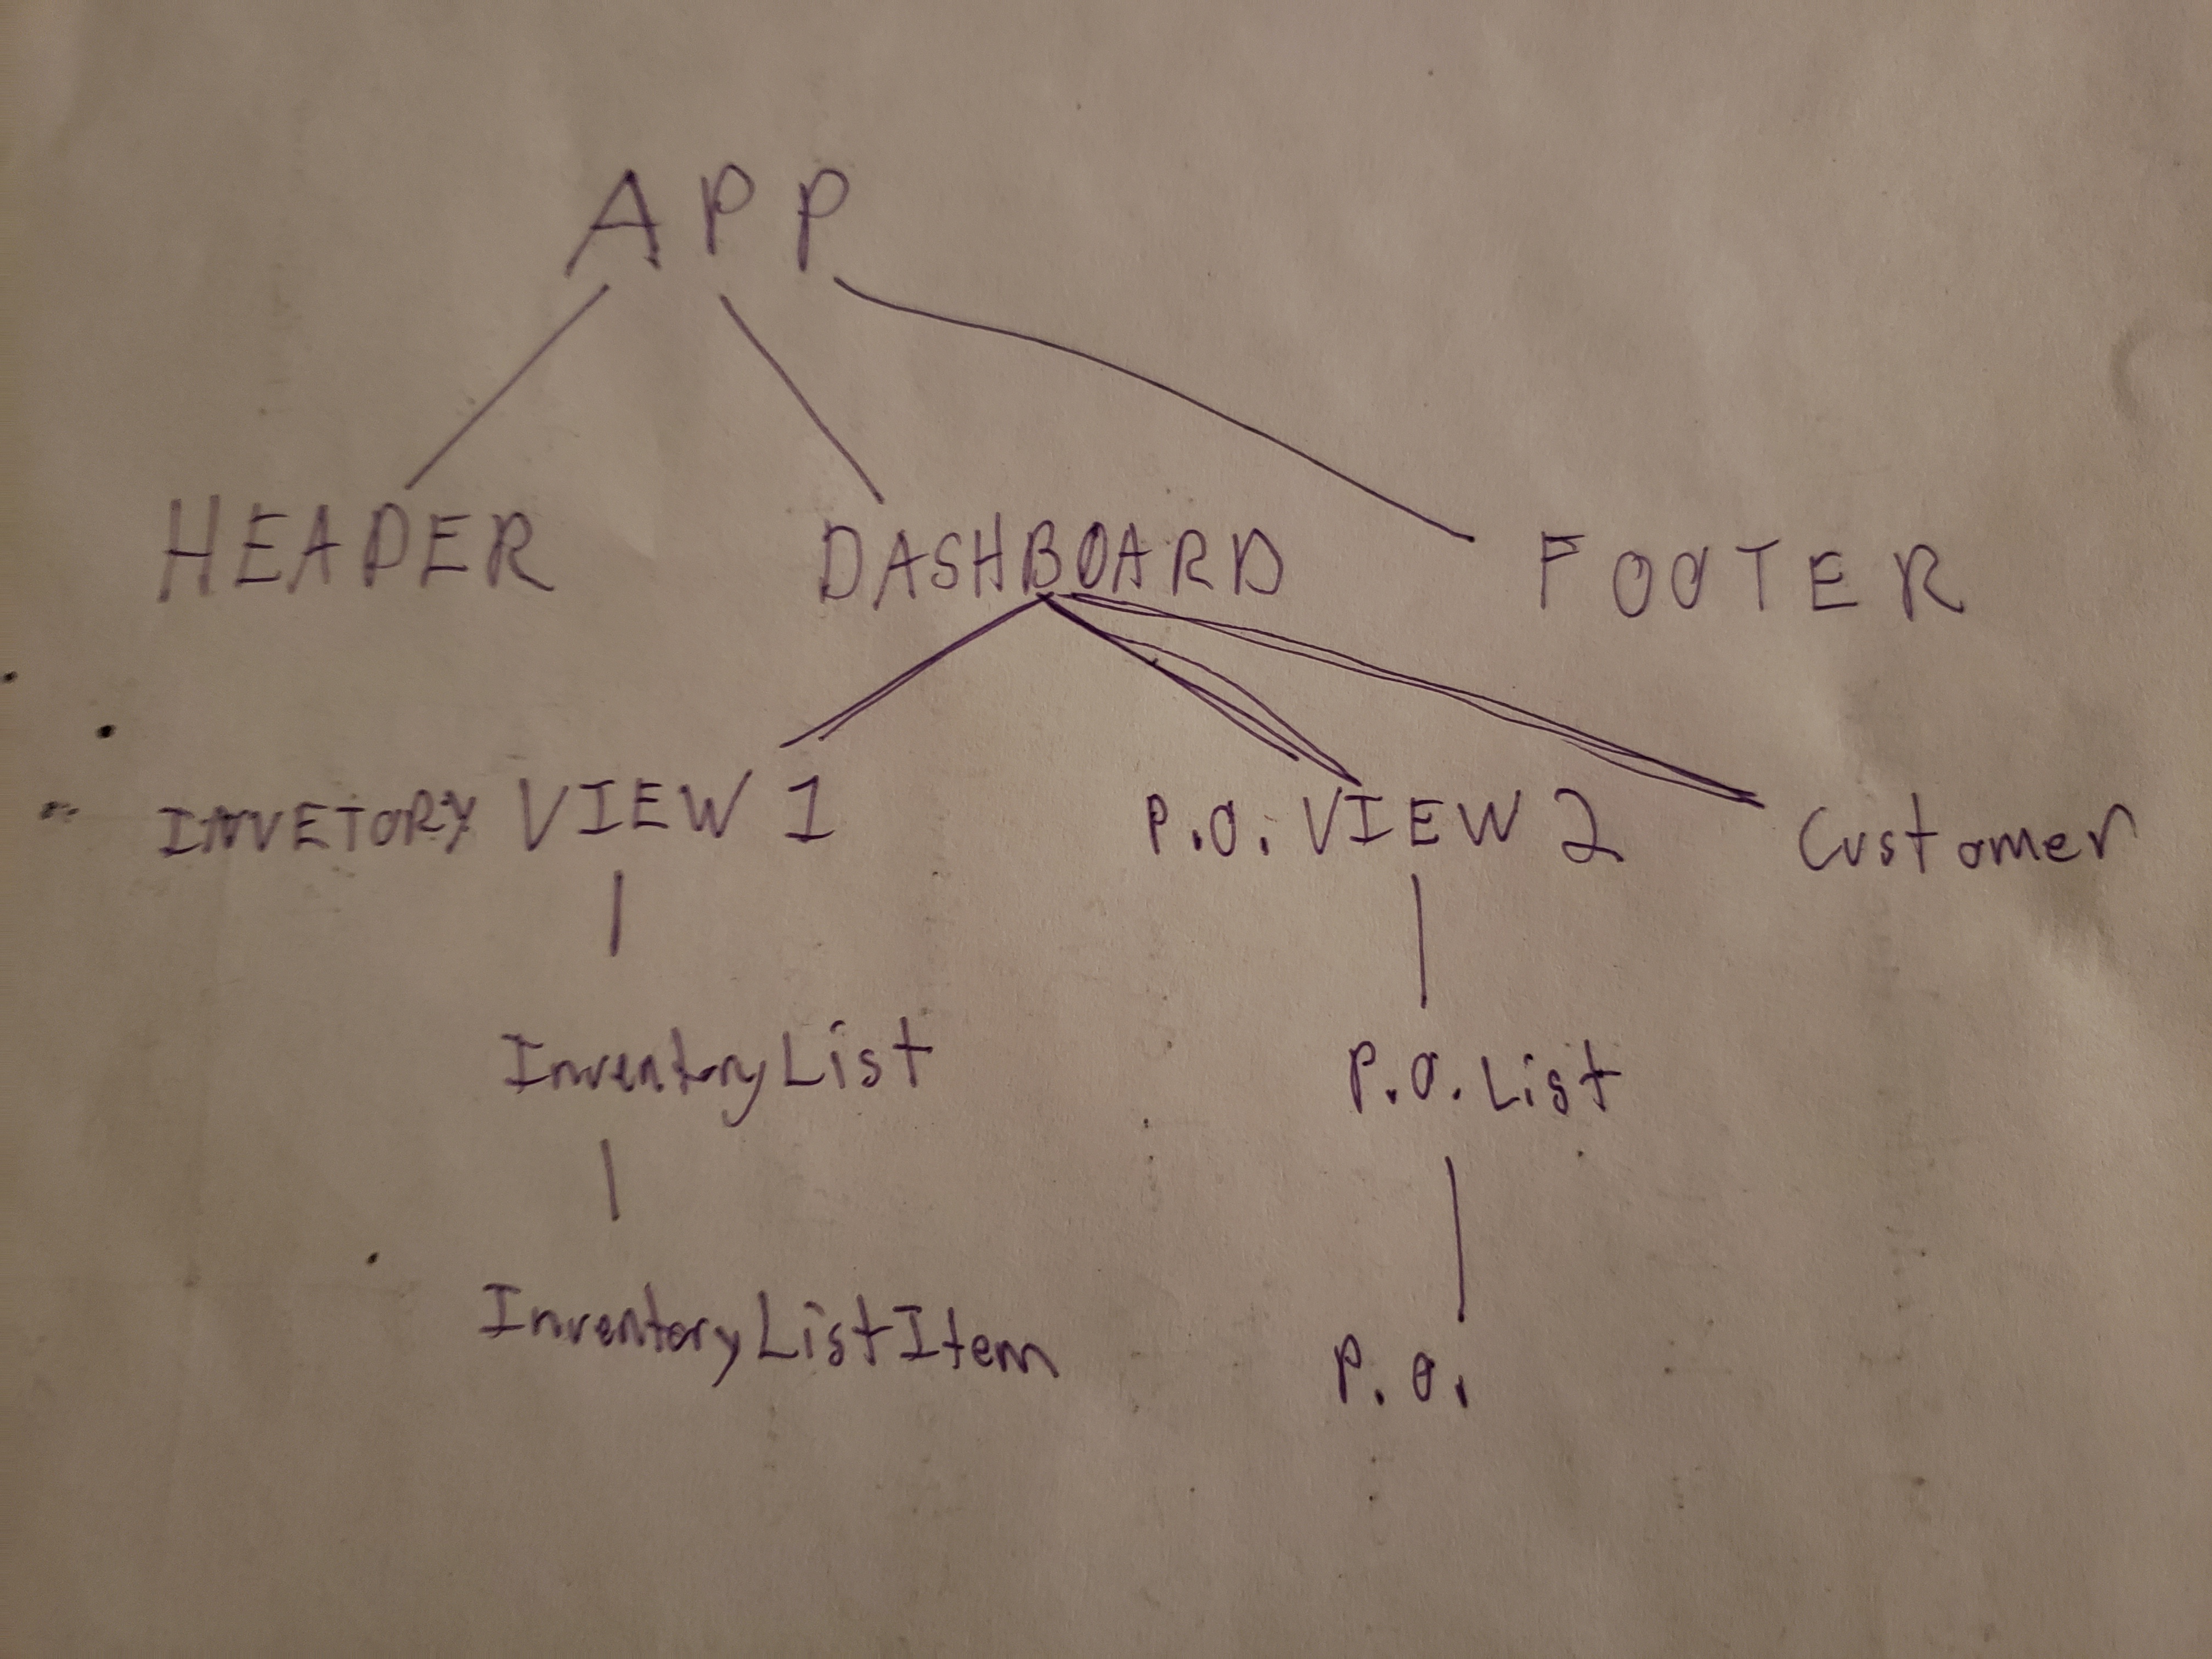 APP
HEADER DASHBOARD FOOTER
INVETORY VIEW 1 P.O. VIEW 2 Customer
InventoryList P.O. List
InventoryListItem P.O.